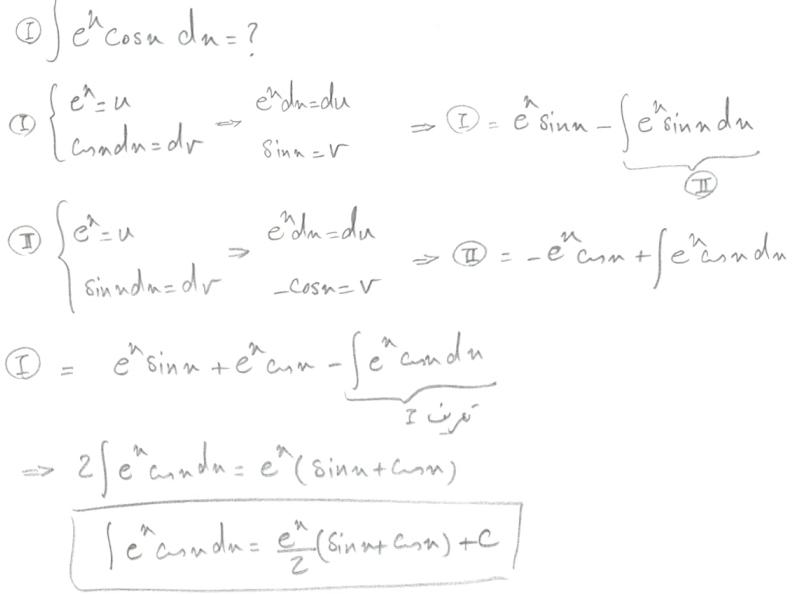 Ⓘ ∫ e^x cosx dx = ?
Ⓘ { e^x = u ⇒ e^x dx = du
cosx dx = dv sinx = v ⇒ Ⓘ = e^x sinx − ∫ e^x sinx dx
Ⓘ︎Ⅱ
Ⅱ { e^x = u ⇒ e^x dx = du
sinx dx = dv −cosx = v ⇒ Ⅱ = −e^x cosx + ∫ e^x cosx dx
Ⓘ = e^x sinx + e^x cosx − ∫ e^x cosx dx
تعریف I
⇒ 2∫ e^x cosx dx = e^x (sinx + cosx)
∫ e^x cosx dx = e^x/2 (sinx + cosx) + C